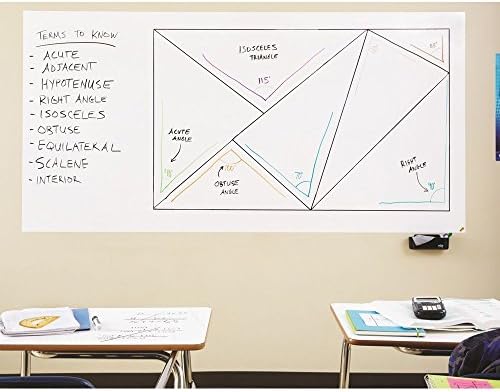 TERMS TO KNOW
- ACUTE
- ADJACENT
- HYPOTENUSE
- RIGHT ANGLE
- ISOSCELES
- OBTUSE
- EQUILATERAL
- SCALENE
- INTERIOR
ISOSCELES
TRIANGLE
115°
ACUTE
ANGLE
100°
OBTUSE
ANGLE
70°
RIGHT
ANGLE
90°